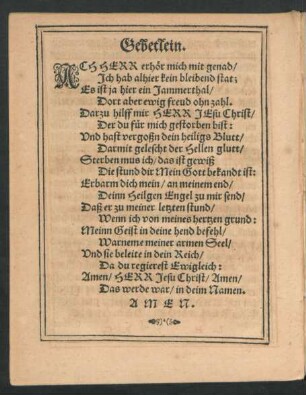 Gebetlein.
ACH HERR erhör mich mit genad/
Ich hab alhier kein bleibend stat;
Es ist ja hier ein Jammerthal/
Dort aber ewig freud ohn zahl.
Darzu hilff mir HERR JEsu Christ/
Der du für mich gestorben bist:
Vnd hast vergoßn dein heiligs Bluet/
Darmit gelescht der Hellen gluet/
Sterben mus ich/ das ist gewiß
Die stund dir Mein Gott bekandt ist:
Erbarm dich mein/ an meinem end/
Deinn Heilgen Engel zu mir send/
Daß er zu meiner letzten stund/
Wenn ich von meines hertzen grund:
Meinn Geist in deine hend befehl/
Warneme meiner armen Seel/
Vnd sie beleite in dein Reich/
Da du regierest Ewigleich:
Amen/ HERR Jesu Christ/ Amen/
Das werde war/ in deim Namen.
A M E N.